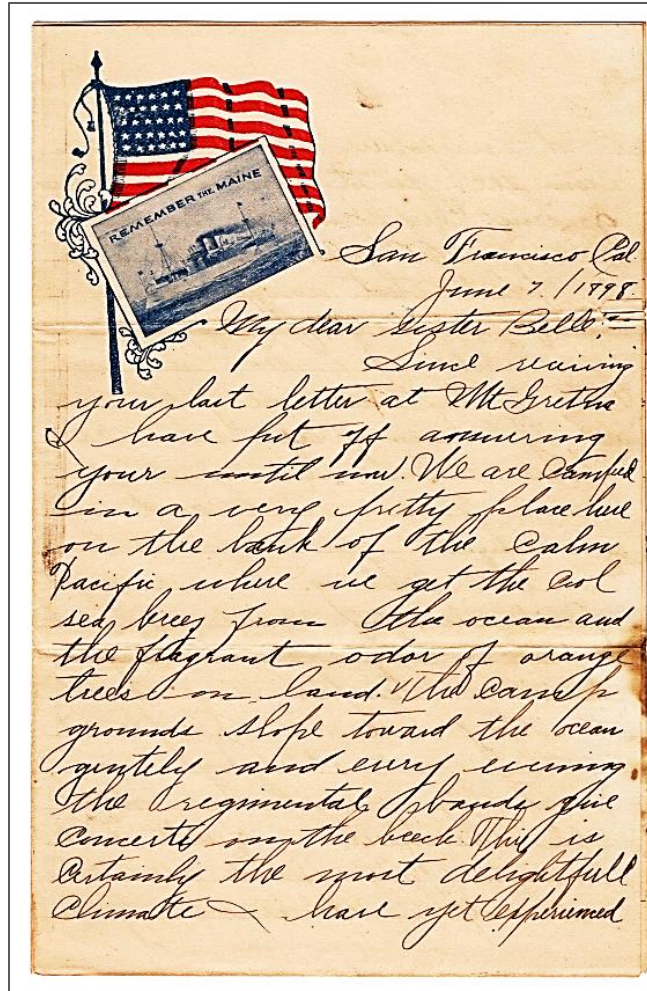 REMEMBER THE MAINE
San Francisco Cal.
June 7/1898.
My dear Sister Belle:=
Since reciving
your last letter at Mt Gretna
I have put off answering
your until now. We are camped
in a very pretty place here
on the bank of the calm
Pacific where we get the cool
sea breez from the ocean and
the fragrant odor of orange
trees on land. The camp
grounds slope toward the ocean
gentely and every evening
the regimental bands give
concerts on the beech. This is
certainly the most delightfull
climate I have yet experienced